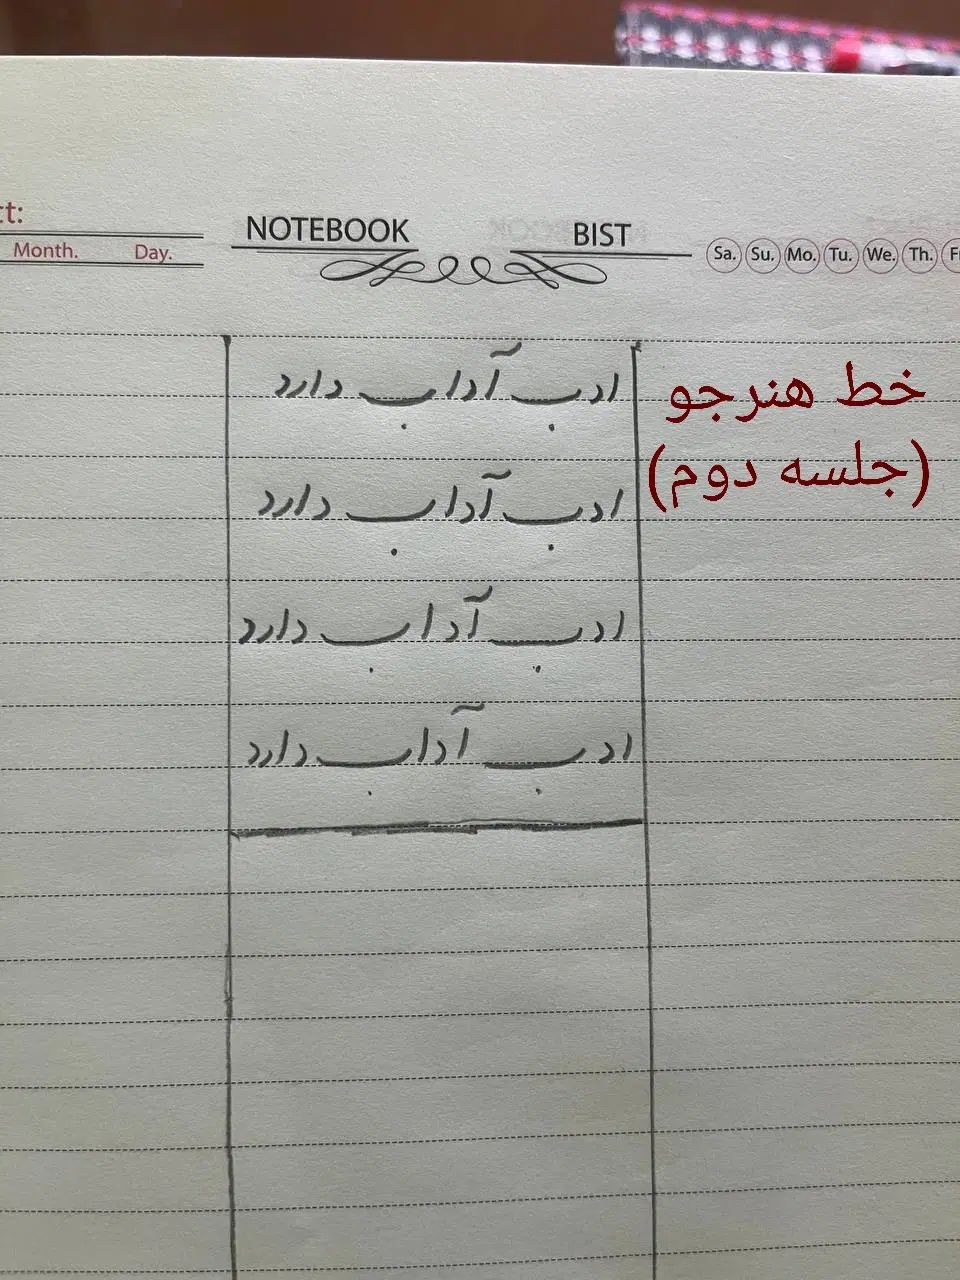 ct:
Month. Day.
NOTEBOOK BIST
Sa. Su. Mo. Tu. We. Th.
خط هنرجو
(جلسه دوم)
ادب آداب دارد
ادب آداب دارد
ادب آداب دارد
ادب آداب دارد